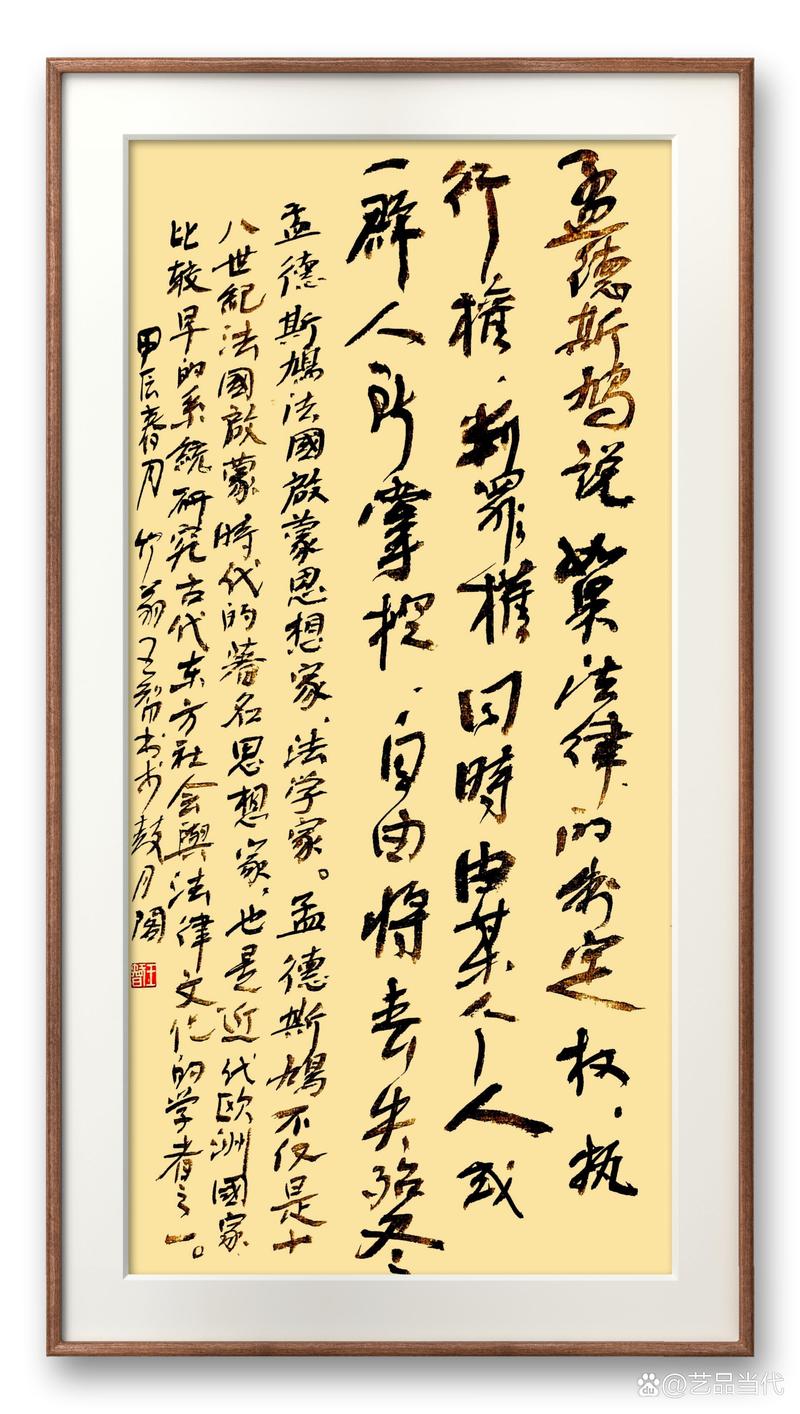 孟德斯鸠说如果法律的制定权、执
行權、判罪權同時由某个人或
一群人所掌握、自由将丧失殆尽
孟德斯鳩法國啟蒙思想家、法学家。孟德斯鳩不仅是十
八世紀法國啟蒙時代的著名思想家，也是近代欧洲國家
比較早的系統研究古代东方社会與法律文化的学者之一。
甲辰春月竹翁王智书于鼓月阁
@艺品当代